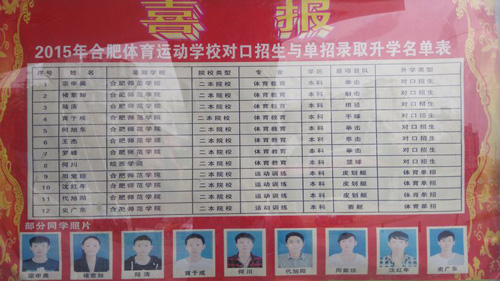 喜报
2015年合肥体育运动学校对口招生与单招录取升学名单表
序号 姓名 录取学院 院校类型 专业 学历 原项目队 升学类型
1 宗申奥 合肥师范学院 二本院校 体育教育 本科 拳击 对口招生
2 褚紫如 合肥师范学院 二本院校 体育教育 本科 射击 对口招生
3 陆涛 合肥师范学院 二本院校 体育教育 本科 田径 对口招生
4 黄于成 合肥师范学院 二本院校 体育教育 本科 手球 对口招生
5 何旭东 合肥师范学院 二本院校 体育教育 本科 拳击 对口招生
6 王杰 合肥师范学院 二本院校 体育教育 本科 拳击 对口招生
7 罗峰 合肥师范学院 二本院校 体育教育 本科 拳击 对口招生
8 何川 皖西学院 二本院校 体育教育 本科 篮球 对口招生
9 合肥师范学院 二本院校 运动训练 本科 皮划艇 体育单招
10 沈红年 合肥师范学院 二本院校 运动训练 本科 皮划艇 体育单招
11 代旭阳 合肥师范学院 二本院校 运动训练 本科 皮划艇 体育单招
12 史广东 合肥师范学院 二本院校 运动训练 本科 赛艇 体育单招
部分同学照片
宗申奥 褚紫如 陆涛 黄于成 何川 代旭阳 沈红年 史广东